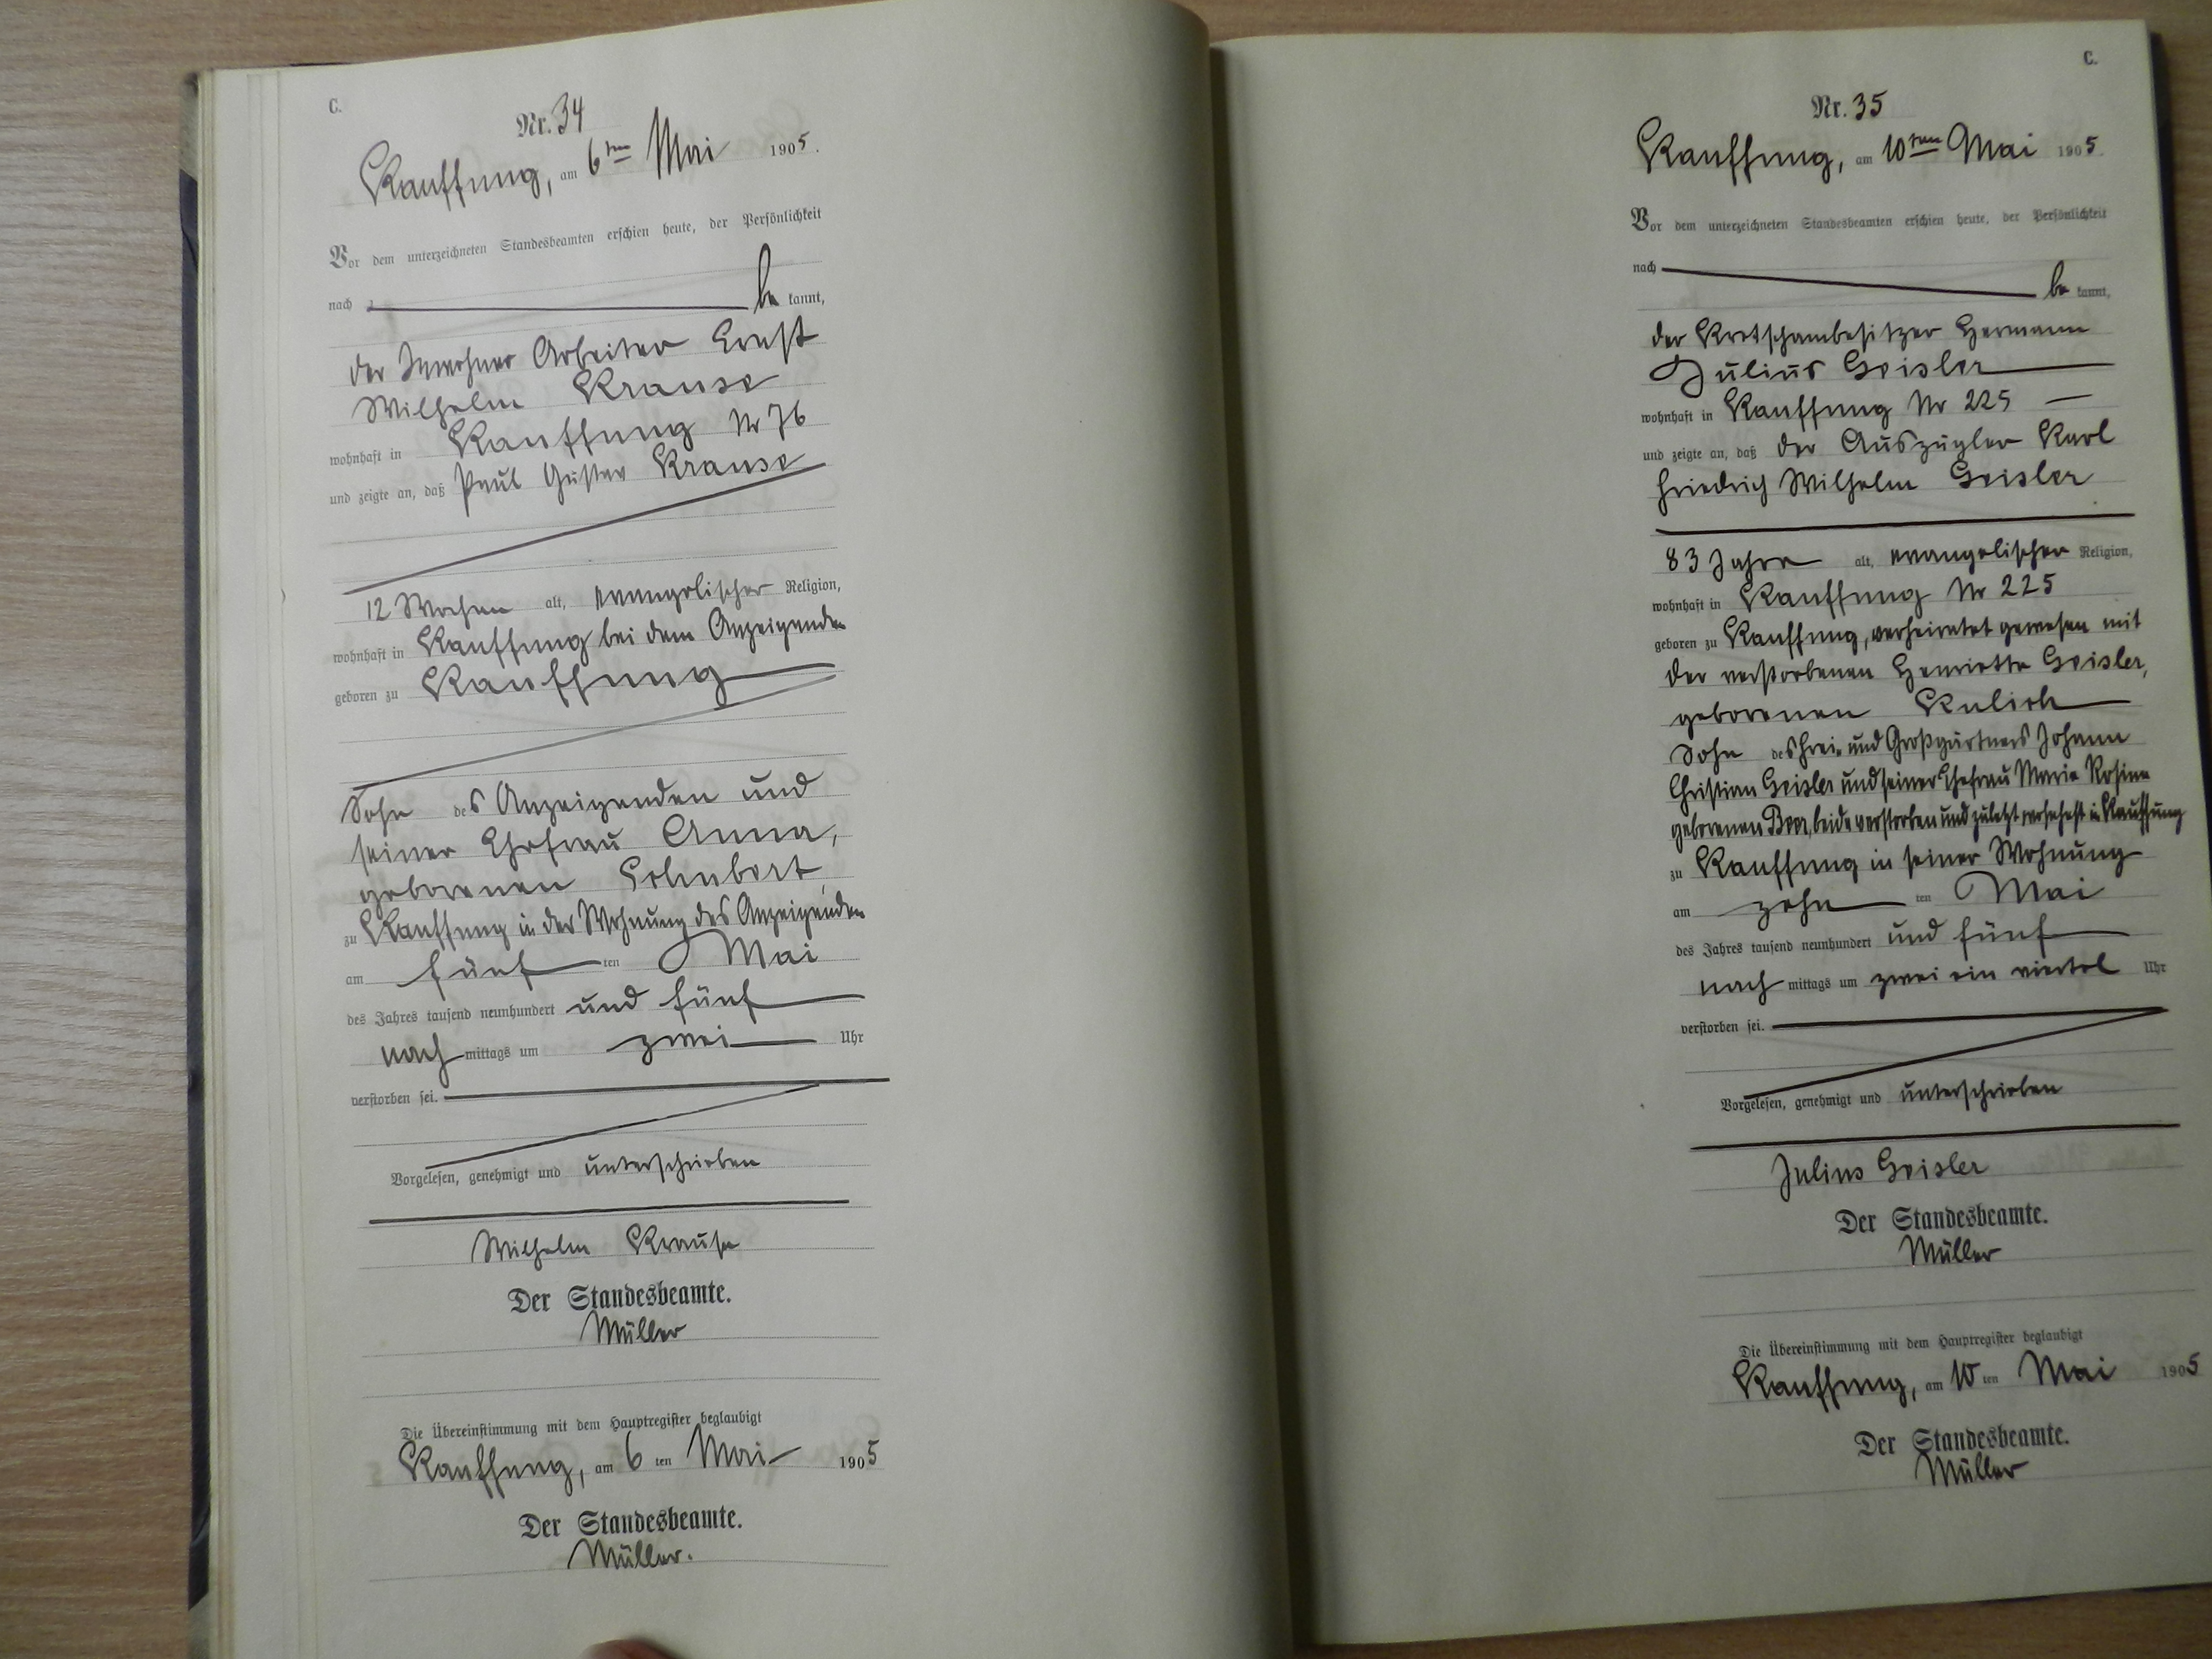 C.
Nr. 34
Kauffung, am 6ten Mai 1905.
Vor dem unterzeichneten Standesbeamten erschien heute, der Persönlichkeit
nach be kannt,
der Inwohner Arbeiter Ernst
Wilhelm Krause
wohnhaft in Kauffung Nr 76
und zeigte an, daß Paul Gustav Krause
12 Wochen alt, evangelischer Religion,
wohnhaft in Kauffung bei dem Anzeigenden
geboren zu Kauffung
Sohn des Anzeigenden und
seiner Ehefrau Anna,
geborenen
zu Kauffung in der Wohnung des Anzeigenden
am fünf ten Mai
des Jahres tausend neunhundert und fünf
nach mittags um zwei Uhr
verstorben sei.
Vorgelesen, genehmigt und unterschrieben
Wilhelm Krause
Der Standesbeamte.
Müller
Die Übereinstimmung mit dem Hauptregister beglaubigt
Kauffung, am 6 ten Mai 1905
Der Standesbeamte.
Müller.
C.
Nr. 35
Kauffung, am 10ten Mai 1905.
Vor dem unterzeichneten Standesbeamten erschien heute, der Persönlichkeit
nach be kannt,
der Kretschambesitzer Hermann
Julius Geisler
wohnhaft in Kauffung Nr 225
und zeigte an, daß der Auszügler Karl
Friedrich Wilhelm Geisler
83 Jahre alt, evangelischer Religion,
wohnhaft in Kauffung Nr 225
geboren zu Kauffung, verheiratet gewesen mit
der verstorbenen Henriette Geisler,
geborenen
Sohn des Frei- und Großgärtners Johann
Christian Geisler und seiner Ehefrau Marie Rosine
geborenen Beer, beide verstorben und zuletzt wohnhaft in Kauffung
zu Kauffung in seiner Wohnung
am zehn ten Mai
des Jahres tausend neunhundert und fünf
nach mittags um zwei ein viertel Uhr
verstorben sei.
Vorgelesen, genehmigt und unterschrieben
Julius Geisler
Der Standesbeamte.
Müller
Die Übereinstimmung mit dem Hauptregister beglaubigt
Kauffung, am 10 ten Mai 1905
Der Standesbeamte.
Müller